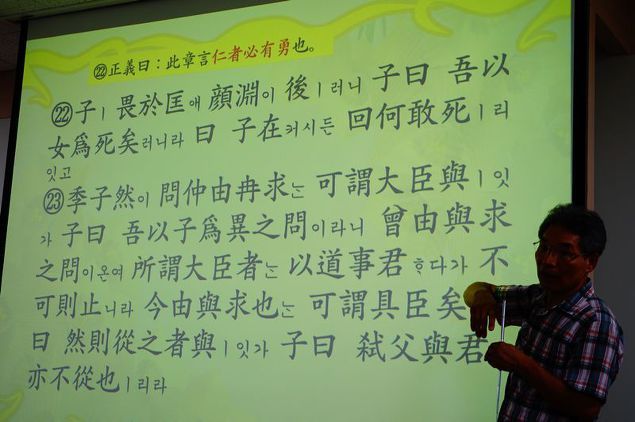 ㉒正義曰：此章言仁者必有勇也。
㉒子ㅣ 畏於匡애 顔淵이 後ㅣ러니 子曰 吾以
女爲死矣러니라 曰 子在커시든 回何敢死ㅣ리
잇고
㉓季子然이 問仲由冉求는 可謂大臣與ㅣ잇
가 子曰 吾以子爲異之問이라니 曾由與求
之問이온여 所謂大臣者는 以道事君ᄒᆞ다가 不
可則止니라 今由與求也는 可謂具臣矣
曰 然則從之者與ㅣ잇가 子曰 弑父與君
亦不從也ㅣ리라